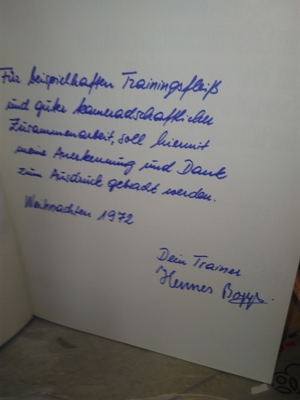 Für beispielhaften Trainingsfleiß
und guter kameradschaftlicher
Zusammenarbeit, soll hiermit
meine Anerkennung und Dank
zum Ausdruck gebracht werden.
Weihnachten 1972
Dein Trainer
Hennes